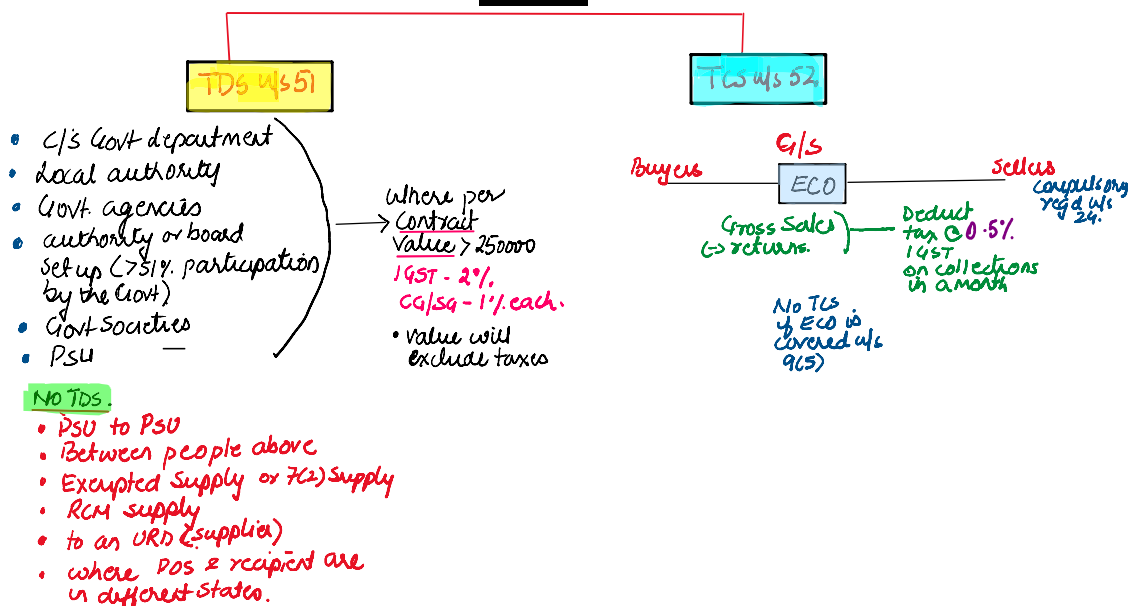 TDS u/s 51
• C/S Govt department
• Local authority
• Govt. agencies
• authority or board
set up (>51% participation
by the Govt)
• Govt Societies
• PSU
where per
contract
value > 250000
IGST - 2%.
CG/SG - 1% each.
• value will
exclude taxes
NO TDS.
• PSU to PSU
• Between people above
• Exempted supply or 7(2) supply
• RCM supply
• to an URD (supplier)
• where POS & recipient are
in different states.
TCS u/s 52
G/S
Buyers
ECO
Sellers
compulsory
regd u/s
24.
Gross Sales
(-) returns.
Deduct
tax @ 0.5%
IGST
on collections
in a month
No TCS
if ECO is
covered u/s
9(5)